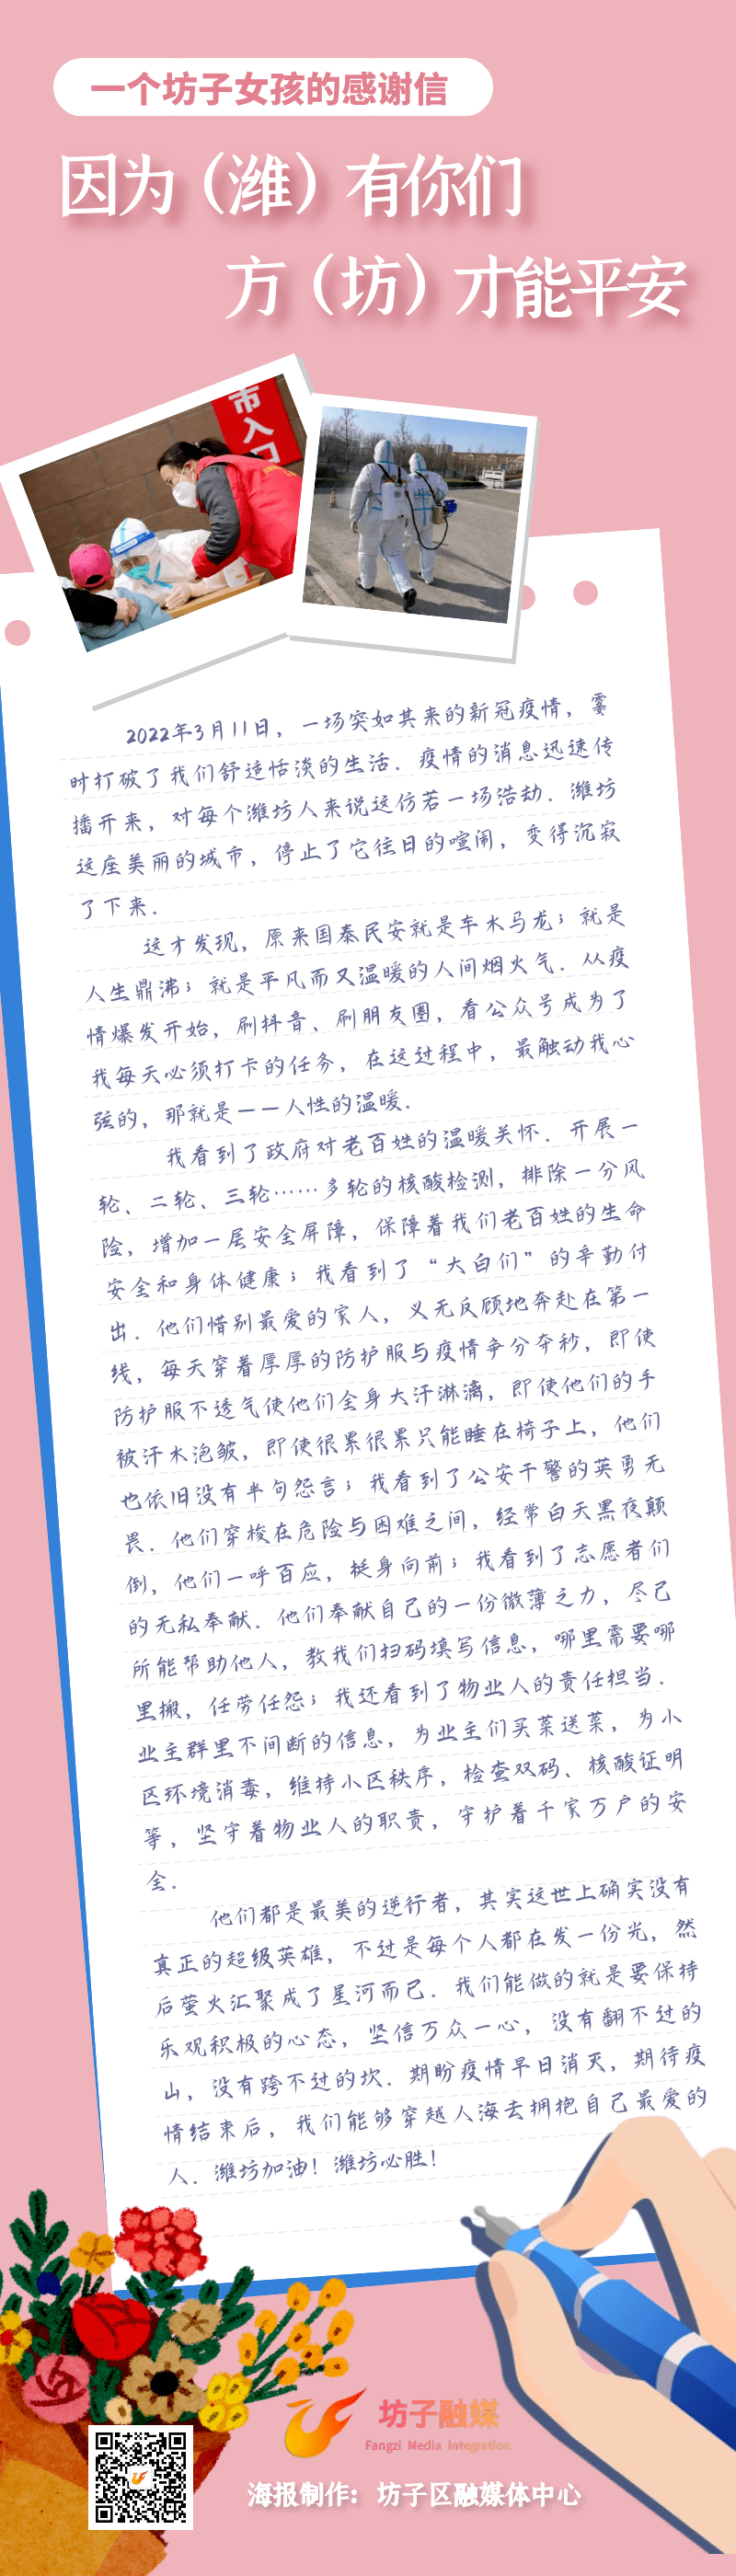 一个坊子女孩的感谢信
因为（潍）有你们
方（坊）才能平安
市入口
2022年3月11日，一场突如其来的新冠疫情，霎
时打破了我们舒适恬淡的生活．疫情的消息迅速传
播开来，对每个潍坊人来说这仿若一场浩劫．潍坊
这座美丽的城市，停止了它往日的喧闹，变得沉寂
了下来．
这才发现，原来国泰民安就是车水马龙；就是
人生鼎沸；就是平凡而又温暖的人间烟火气．从疫
情爆发开始，刷抖音、刷朋友圈，看公众号成为了
我每天必须打卡的任务，在这过程中，最触动我心
弦的，那就是——人性的温暖．
我看到了政府对老百姓的温暖关怀．开展一
轮、二轮、三轮……多轮的核酸检测，排除一分风
险，增加一层安全屏障，保障着我们老百姓的生命
安全和身体健康；我看到了“大白们”的辛勤付
出．他们惜别最爱的家人，义无反顾地奔赴在第一
线，每天穿着厚厚的防护服与疫情争分夺秒，即使
防护服不透气使他们全身大汗淋漓，即使他们的手
被汗水泡皱，即使很累很累只能睡在椅子上，他们
也依旧没有半句怨言；我看到了公安干警的英勇无
畏．他们穿梭在危险与困难之间，经常白天黑夜颠
倒，他们一呼百应，挺身向前；我看到了志愿者们
的无私奉献．他们奉献自己的一份微薄之力，尽己
所能帮助他人，教我们扫码填写信息，哪里需要哪
里搬，任劳任怨；我还看到了物业人的责任担当．
业主群里不间断的信息，为业主们买菜送菜，为小
区环境消毒，维持小区秩序，检查双码、核酸证明
等，坚守着物业人的职责，守护着千家万户的安
全．
他们都是最美的逆行者，其实这世上确实没有
真正的超级英雄，不过是每个人都在发一份光，然
后萤火汇聚成了星河而已．我们能做的就是要保持
乐观积极的心态，坚信万众一心，没有翻不过的
山，没有跨不过的坎．期盼疫情早日消灭，期待疫
情结束后，我们能够穿越人海去拥抱自己最爱的
人．潍坊加油！潍坊必胜！
坊子融媒
Fangzi Media Integration
海报制作：坊子区融媒体中心